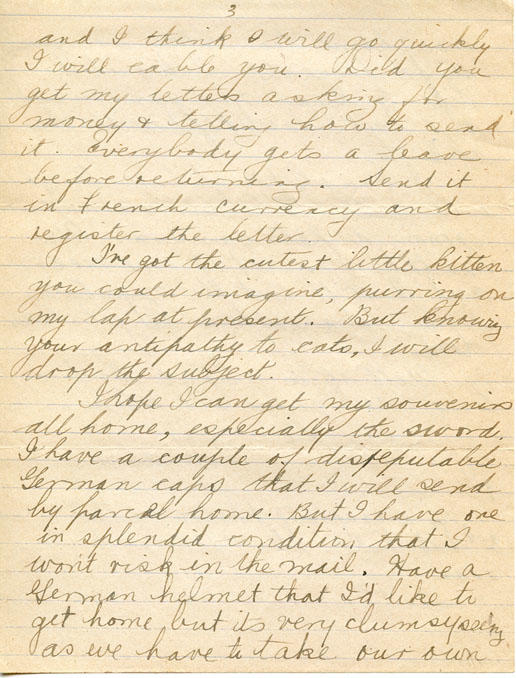 3
and I think I will go quickly
I will cable you. Did you
get my letters asking for
money & telling how to send
it. Everybody gets a leave
before returning. Send it
in French currency and
register the letter.
I've got the cutest little kitten
you could imagine, purring on
my lap at present. But knowing
your antipathy to cats, I will
drop the subject.
I hope I can get my souvenirs
all home, especially the sword.
I have a couple of disreputable
German caps that I will send
by parcel home. But I have one
in splendid condition that I
won't risk in the mail. Have a
German helmet that I'd like to
get home but its very clumsy seeing
as we have to take our own